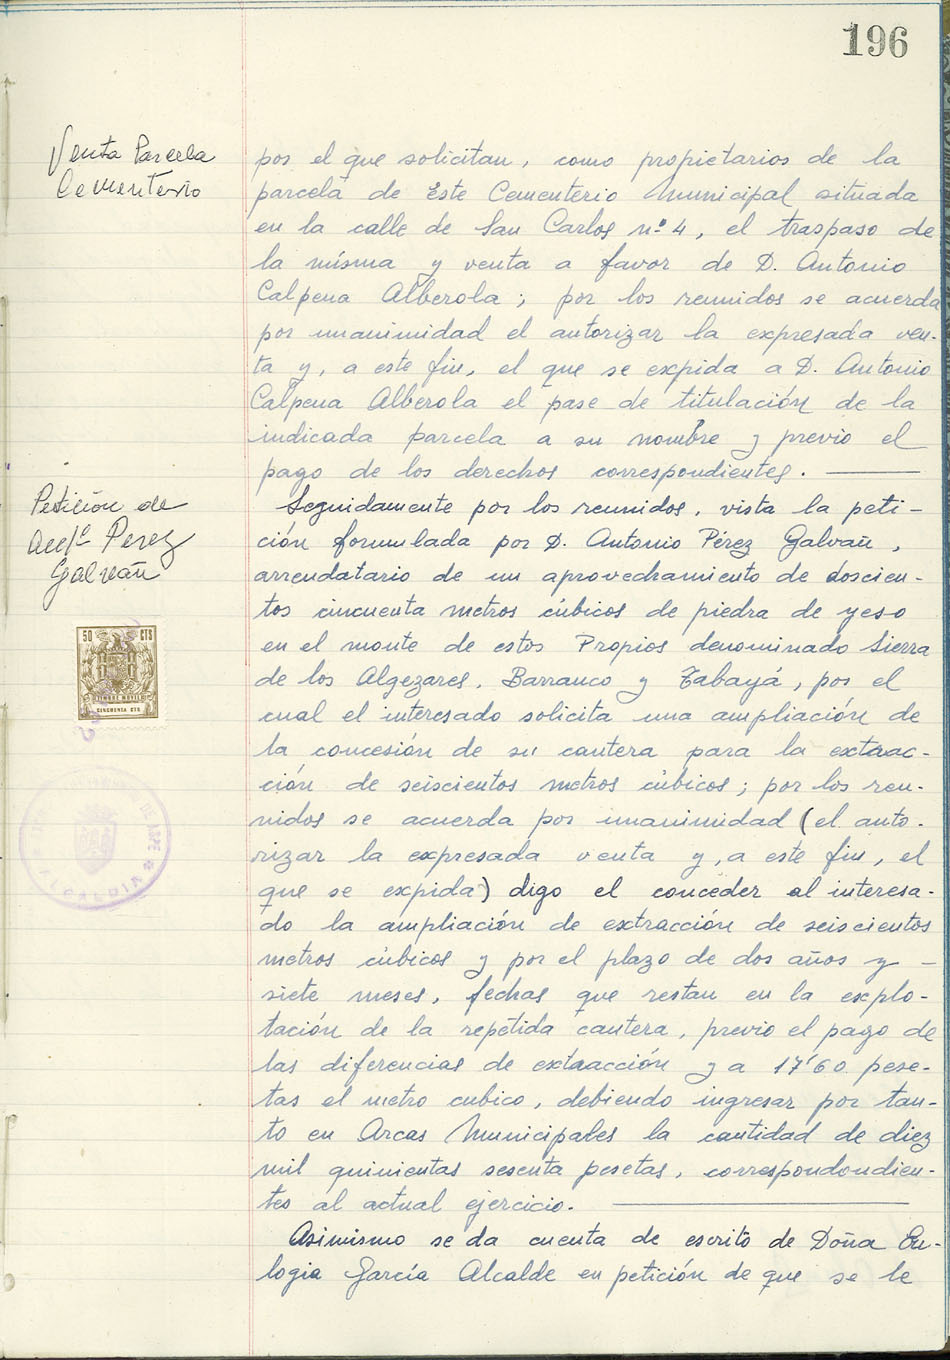 196
Venta Parcela
Cementerio
por el que solicitan, como propietarios de la
parcela de Este Cementerio Municipal situada
en la calle de San Carlos nº 4, el traspaso de
la misma y venta a favor de D. Antonio
Calpena Alberola; por los reunidos se acuerda
por unanimidad el autorizar la expresada ven-
ta y, a este fin, el que se expida a D. Antonio
Calpena Alberola el pase de titulación de la
indicada parcela a su nombre y previo el
pago de los derechos correspondientes. —
Petición de
Antº Perez
Galvañ
Seguidamente por los reunidos, vista la peti-
ción formulada por D. Antonio Pérez Galvañ,
arrendatario de un aprovechamiento de doscien-
tos cincuenta metros cúbicos de piedra de yeso
en el monte de estos Propios denominado Sierra
de los Algezares, Barranco y Tabayá, por el
cual el interesado solicita una ampliación de
la concesión de su cantera para la extrac-
ción de seiscientos metros cúbicos; por los reu-
nidos se acuerda por unanimidad (el auto-
rizar la expresada venta y, a este fin, el
que se expida) digo el conceder al interesa-
do la ampliación de extracción de seiscientos
metros cúbicos y por el plazo de dos años y —
siete meses, fechas que restan en la explo-
tación de la repetida cantera, previo el pago de
las diferencias de extracción y a 17'60 pese-
tas el metro cubico, debiendo ingresar por tan-
to en Arcas Municipales la cantidad de diez
mil quinientas sesenta pesetas, correspondondien-
tes al actual ejercicio. —
Asimismo se da cuenta de escrito de Doña Eu-
logia García Alcalde en petición de que se le
50 CTS
TIMBRE MOVIL
CINCUENTA CTS
DE ASPE
ALCALDIA